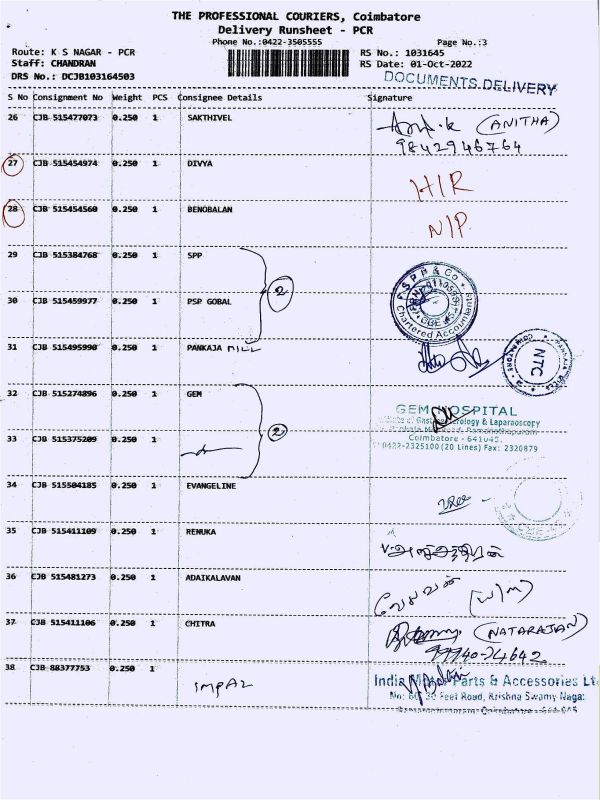 THE PROFESSIONAL COURIERS, Coimbatore
Delivery Runsheet - PCR
Phone No.:0422-3505555 Page No.:3
Route: K S NAGAR - PCR RS No.: 1031645
Staff: CHANDRAN RS Date: 01-Oct-2022
DRS No.: DCJB103164503 DOCUMENTS.DELIVERY
S No Consignment No Weight PCS Consignee Details Signature
26 CJB 515477073 0.250 1 SAKTHIVEL (ANITHA)
9842946764
27 CJB 515454974 0.250 1 DIVYA H/R
28 CJB 515454560 0.250 1 BENOBALAN N/P
29 CJB 515384768 0.250 1 SPP
2
SPP & Co
Chartered Accountants
CBE
30 CJB 515459977 0.250 1 PSP GOBAL
31 CJB 515495990 0.250 1 PANKAJA MILL
NTC
32 CJB 515274896 0.250 1 GEM
GEM HOSPITAL
& Laparaoscopy
2
Coimbatore - 641045.
0422-2325100 (20 Lines) Fax: 2320879
33 CJB 515375209 0.250 1
34 CJB 515504185 0.250 1 EVANGELINE
35 CJB 515411109 0.250 1 RENUKA
36 CJB 515481273 0.250 1 ADAIKALAVAN வேலவன்
37 CJB 515411106 0.250 1 CHITRA (NATARAJAN)
97740-74642
38 CJB 88377753 0.250 1 IMPAL
India Parts & Accessories Lt
Feet Road, Krishna Swamy Nagar